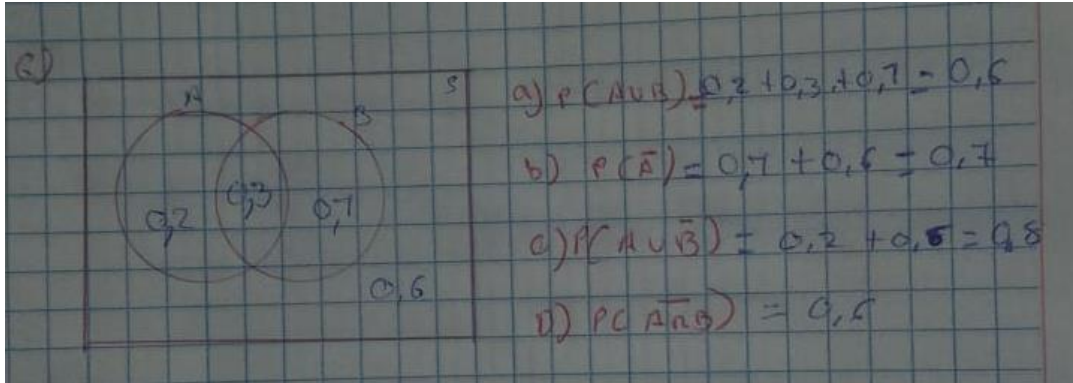 6)
S
A
B
0,2
0,3
0,1
0,6
a) P(A∪B) = 0,2 + 0,3 + 0,1 = 0,6
b) P(Ā) = 0,1 + 0,6 = 0,7
c) P(A∪B̄) = 0,2 + 0,6 = 0,8
D) P(A̅∩̅B̅) = 0,6